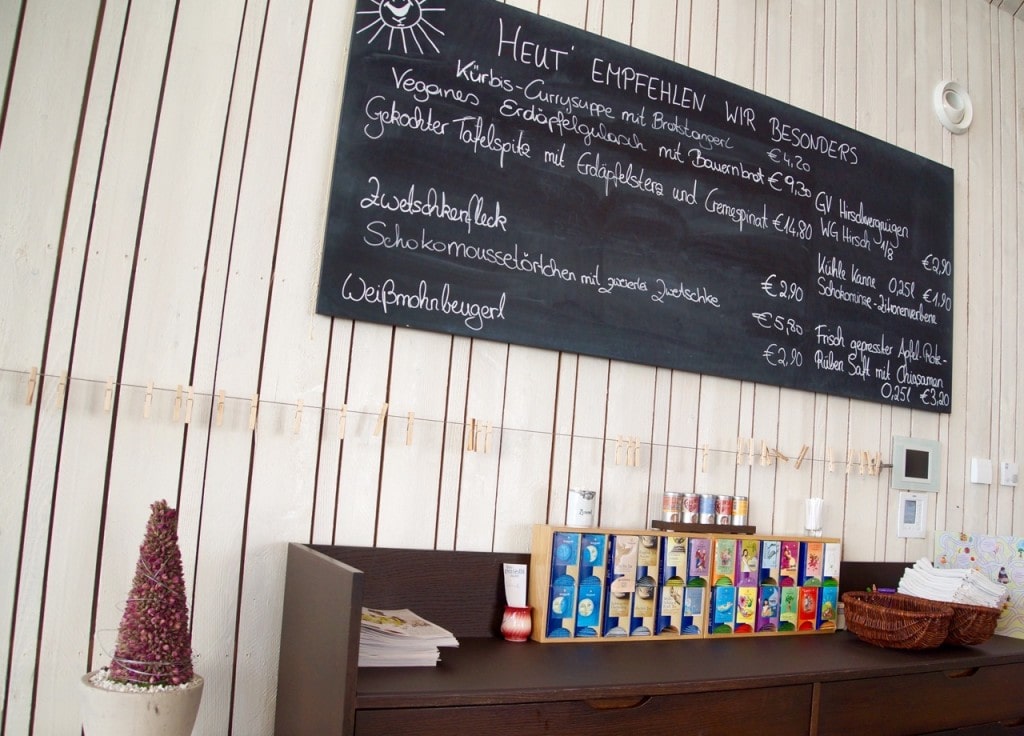 HEUT' EMPFEHLEN WIR BESONDERS
Kürbis-Currysuppe mit Brotstangerl €4,20
Veganes Erdäpfelgulasch mit Bauernbrot €9,30
Gekochter Tafelspitz mit Erdäpfelsterz und Cremespinat €14,80
Zwetschkenfleck €2,90
Schokomoussetörtchen mit zweierlei Zwetschke €5,80
Weißmohnbeugerl €2,90
GV Hirschvergnügen
WG Hirsch 1/8 €2,90
Kühle Kanne 0,25l €1,90
Schokominze-Zitronenverbene
Frisch gepresster Apfel-Rote-
Rüben Saft mit Chiasamen
0,25l €3,20